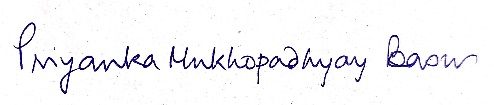 Priyanka Mukhopadhyay Basu